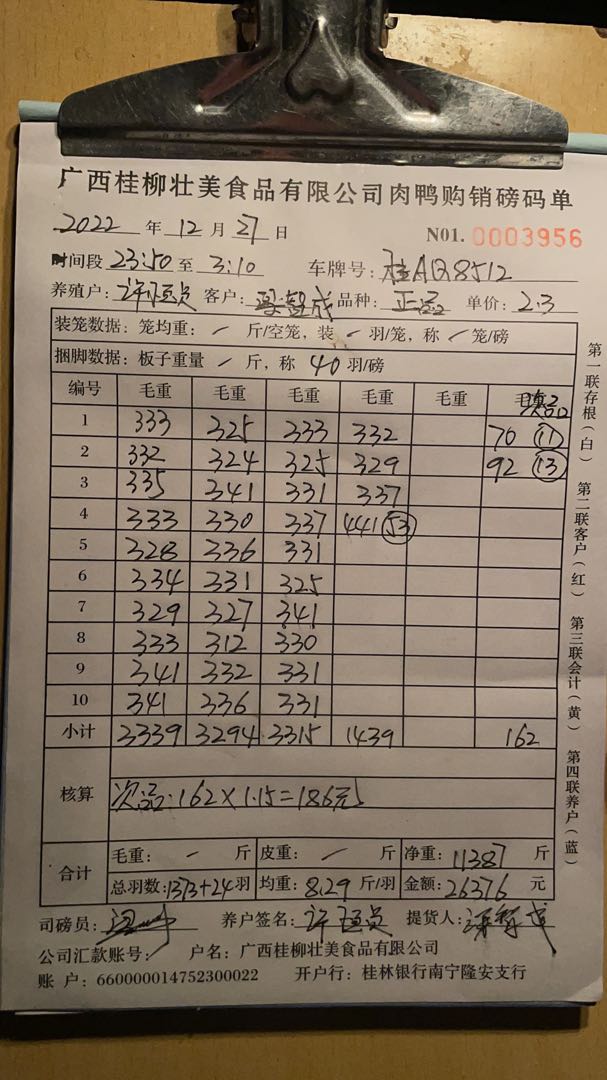 广西桂柳壮美食品有限公司肉鸭购销磅码单
2022 年 12 月 27 日 N01. 0003956
时间段 23:50 至 3:10 车牌号: 桂AQ8512
养殖户: 许恒员 客户: 品种: 正品 单价: 2.3
装笼数据: 笼均重: / 斤/空笼, 装 / 羽/笼, 称 / 笼/磅
捆脚数据: 板子重量 / 斤, 称 40 羽/磅
编号 毛重 毛重 毛重 毛重 毛重 次品
1 333 325 333 332 70 (11)
2 332 324 325 329 92 (13)
3 335 341 331 337
4 333 330 337 441 (53)
5 328 336 331
6 334 331 325
7 329 327 341
8 333 312 330
9 341 332 331
10 341 336 331
小计 3339 3294 3315 1439 162
核算 次品:162×1.15=186元
合计 毛重: / 斤 皮重: / 斤 净重: 11387 斤
总羽数: 1373+24 羽 均重: 8.29 斤/羽 金额: 26376 元
司磅员: 养户签名: 许恒员 提货人:
公司汇款账号: 户名: 广西桂柳壮美食品有限公司
账 户: 660000014752300022 开户行: 桂林银行南宁隆安支行
第一联存根(白) 第二联客户(红) 第三联会计(黄) 第四联养户(蓝)